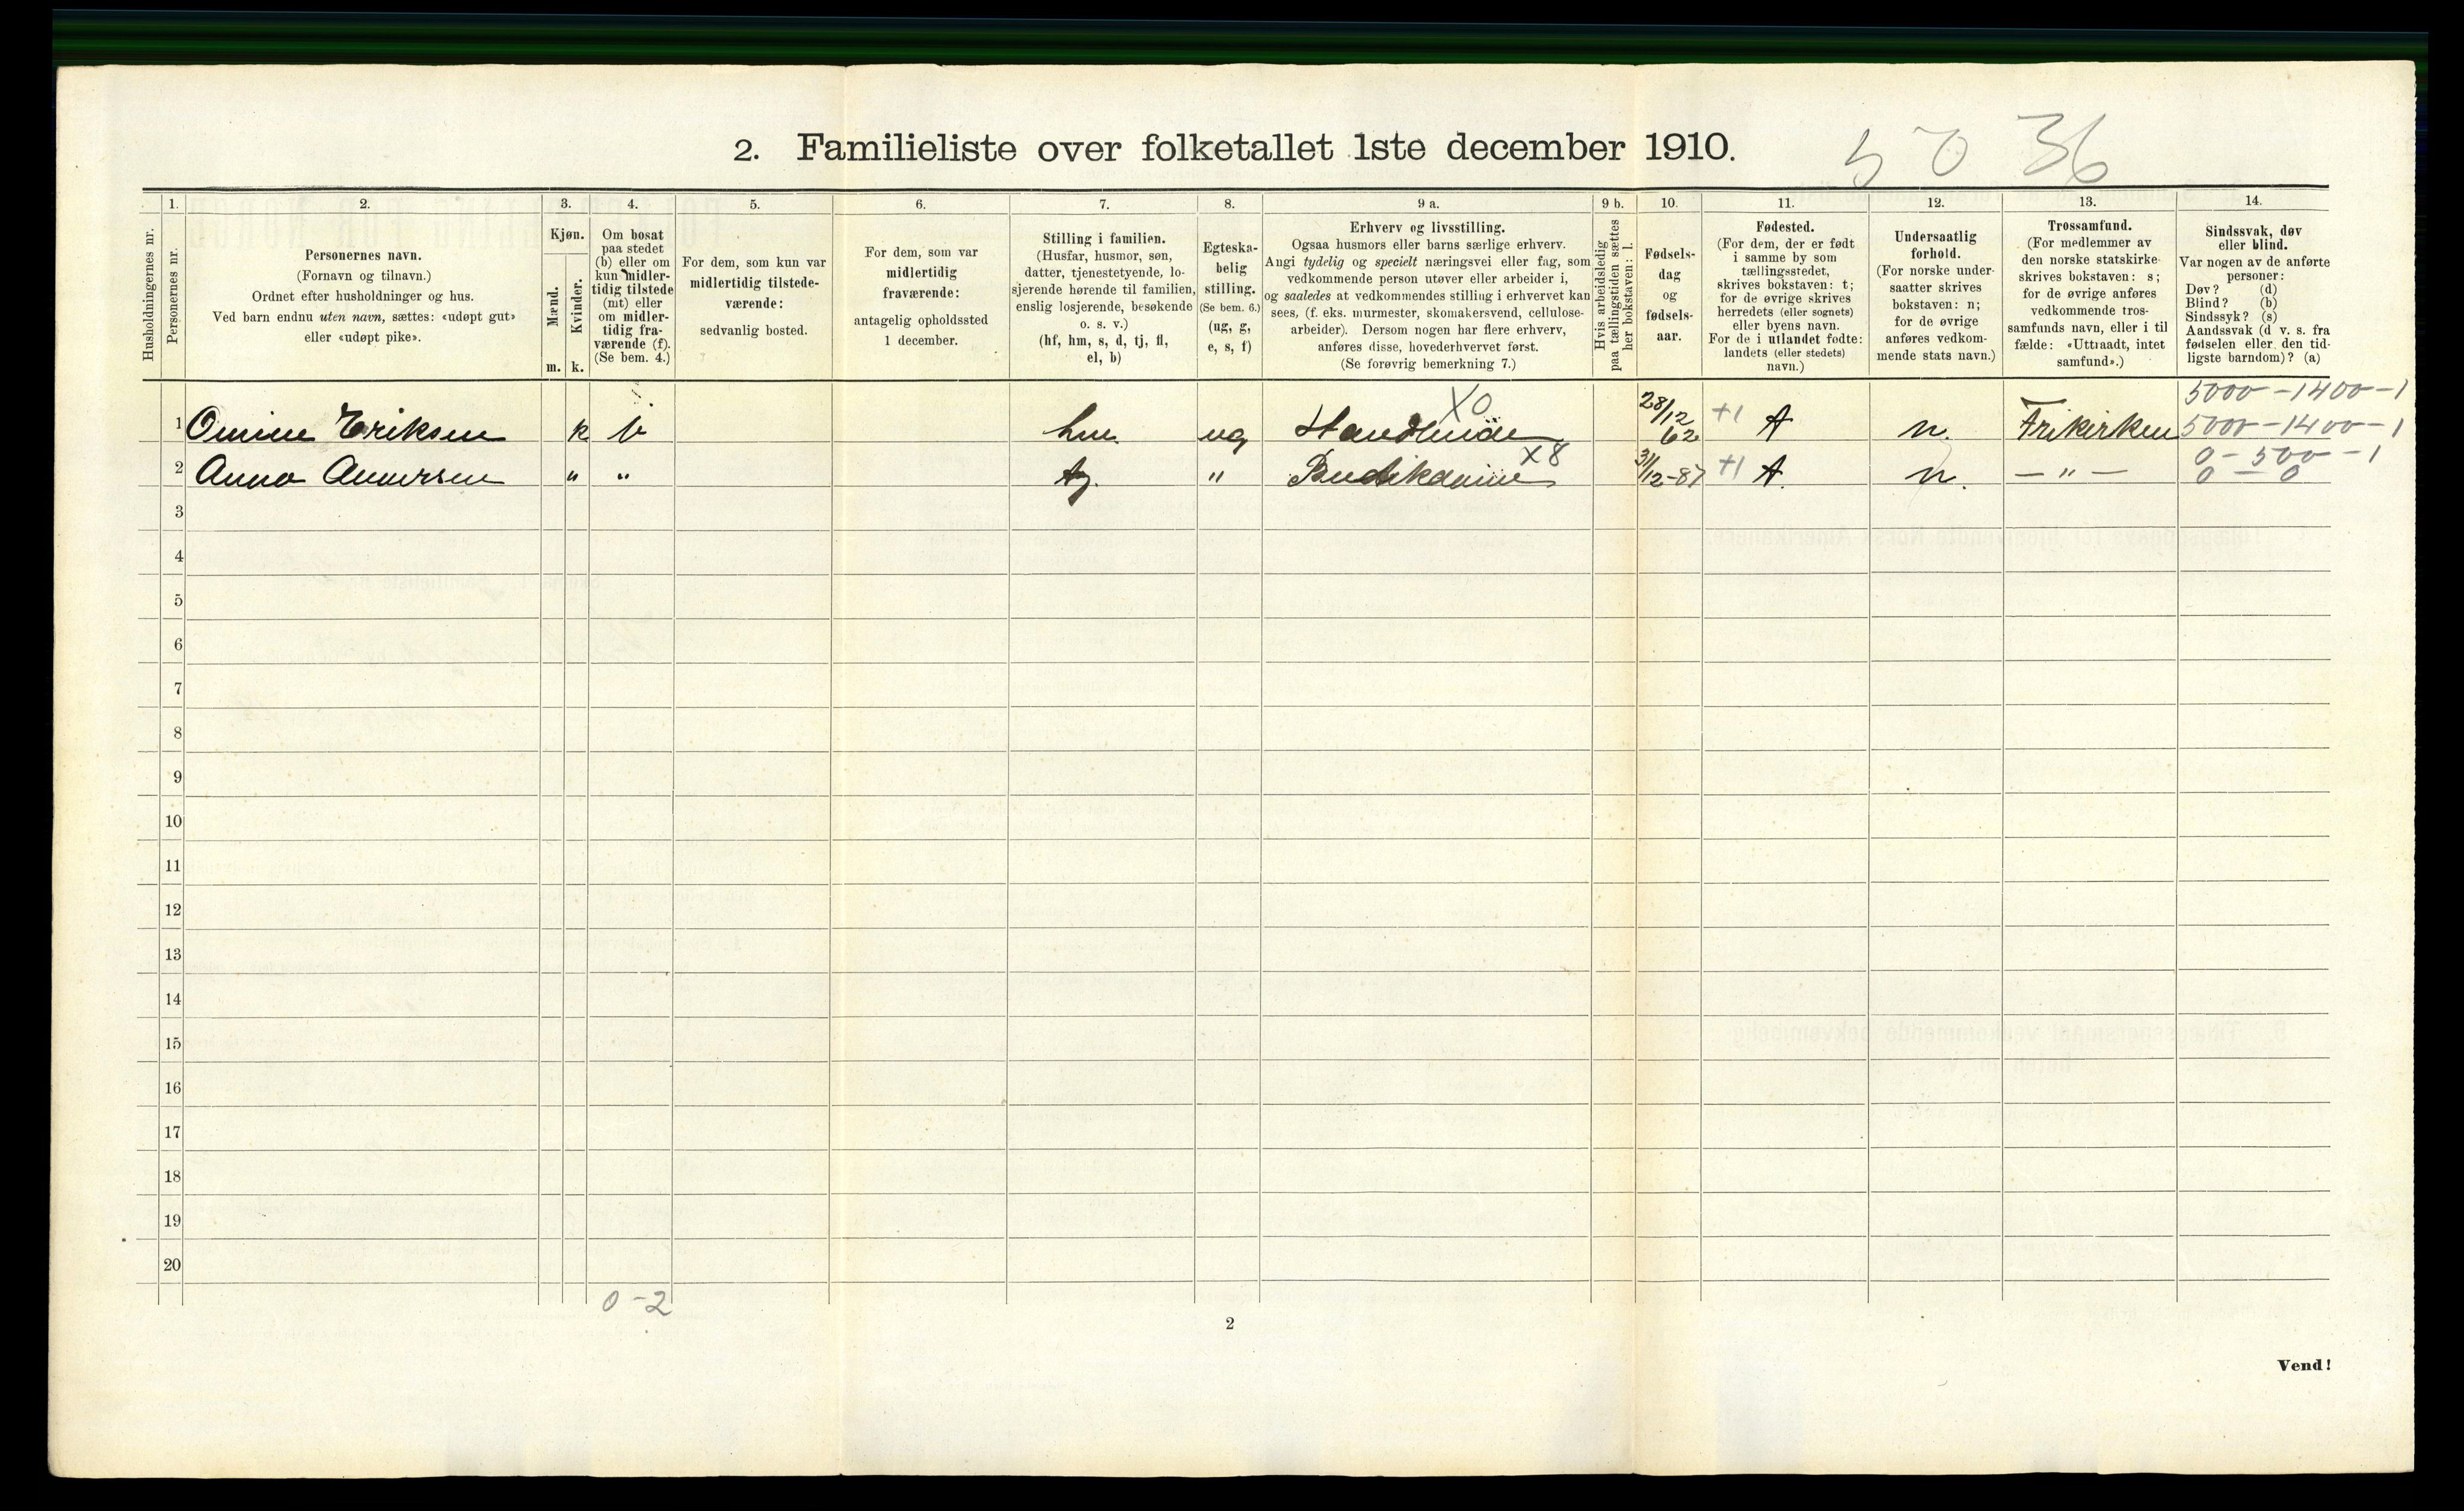 2. Familieliste over folketallet 1ste december 1910.
50 36
Husholdningernes nr.
1.
Personernes nr.
2.
Personernes navn.
(Fornavn og tilnavn.)
Ordnet efter husholdninger og hus.
Ved barn endnu uten navn, sættes: «udøpt gut»
eller «udøpt pike».
3.
Kjøn.
Mænd.
Kvinder.
m. k.
4.
Om bosat
paa stedet
(b) eller om
kun midler-
tidig tilstede
(mt) eller
om midler-
tidig fra-
værende (f).
(Se bem. 4.)
5.
For dem, som kun var
midlertidig tilstede-
værende:
sedvanlig bosted.
6.
For dem, som var
midlertidig
fraværende:
antagelig opholdssted
1 december.
7.
Stilling i familien.
(Husfar, husmor, søn,
datter, tjenestetyende, lo-
sjerende hørende til familien,
enslig losjerende, besøkende
o. s. v.)
(hf, hm, s, d, tj, fl,
el, b)
8.
Egteska-
belig
stilling.
(Se bem. 6.)
(ug, g,
e, s, f)
9 a.
Erhverv og livsstilling.
Ogsaa husmors eller barns særlige erhverv.
Angi tydelig og specielt næringsvei eller fag, som
vedkommende person utøver eller arbeider i,
og saaledes at vedkommendes stilling i erhvervet kan
sees, (f. eks. murmester, skomakersvend, cellulose-
arbeider). Dersom nogen har flere erhverv,
anføres disse, hovederhvervet først.
(Se forøvrig bemerkning 7.)
9 b.
Hvis arbeidsledig
paa tællingstiden sættes
her bokstaven: l.
10.
Fødsels-
dag
og
fødsels-
aar.
11.
Fødested.
(For dem, der er født
i samme by som
tællingsstedet,
skrives bokstaven: t;
for de øvrige skrives
herredets (eller sognets)
eller byens navn.
For de i utlandet fødte:
landets (eller stedets)
navn.)
12.
Undersaatlig
forhold.
(For norske under-
saatter skrives
bokstaven: n;
for de øvrige
anføres vedkom-
mende stats navn.)
13.
Trossamfund.
(For medlemmer av
den norske statskirke
skrives bokstaven: s;
for de øvrige anføres
vedkommende tros-
samfunds navn, eller i til
fælde: «Uttraadt, intet
samfund».)
14.
Sindssvak, døv
eller blind.
Var nogen av de anførte
personer:
Døv? (d)
Blind? (b)
Sindssyk? (s)
Aandssvak (d v. s. fra
fødselen eller den tid-
ligste barndom)? (a)
5000 - 1400 - 1
1 Omine Eriksen k b hm. ug X0 28/12 62 +1 t n. Frikirken 5000 - 1400 - 1
0 - 500 - 1
2 Anna Andersen " " tj. " X8 31/12-87 +1 t. n. — " — 0 - 0
3
4
5
6
7
8
9
10
11
12
13
14
15
16
17
18
19
20
0 - 2
2
Vend!